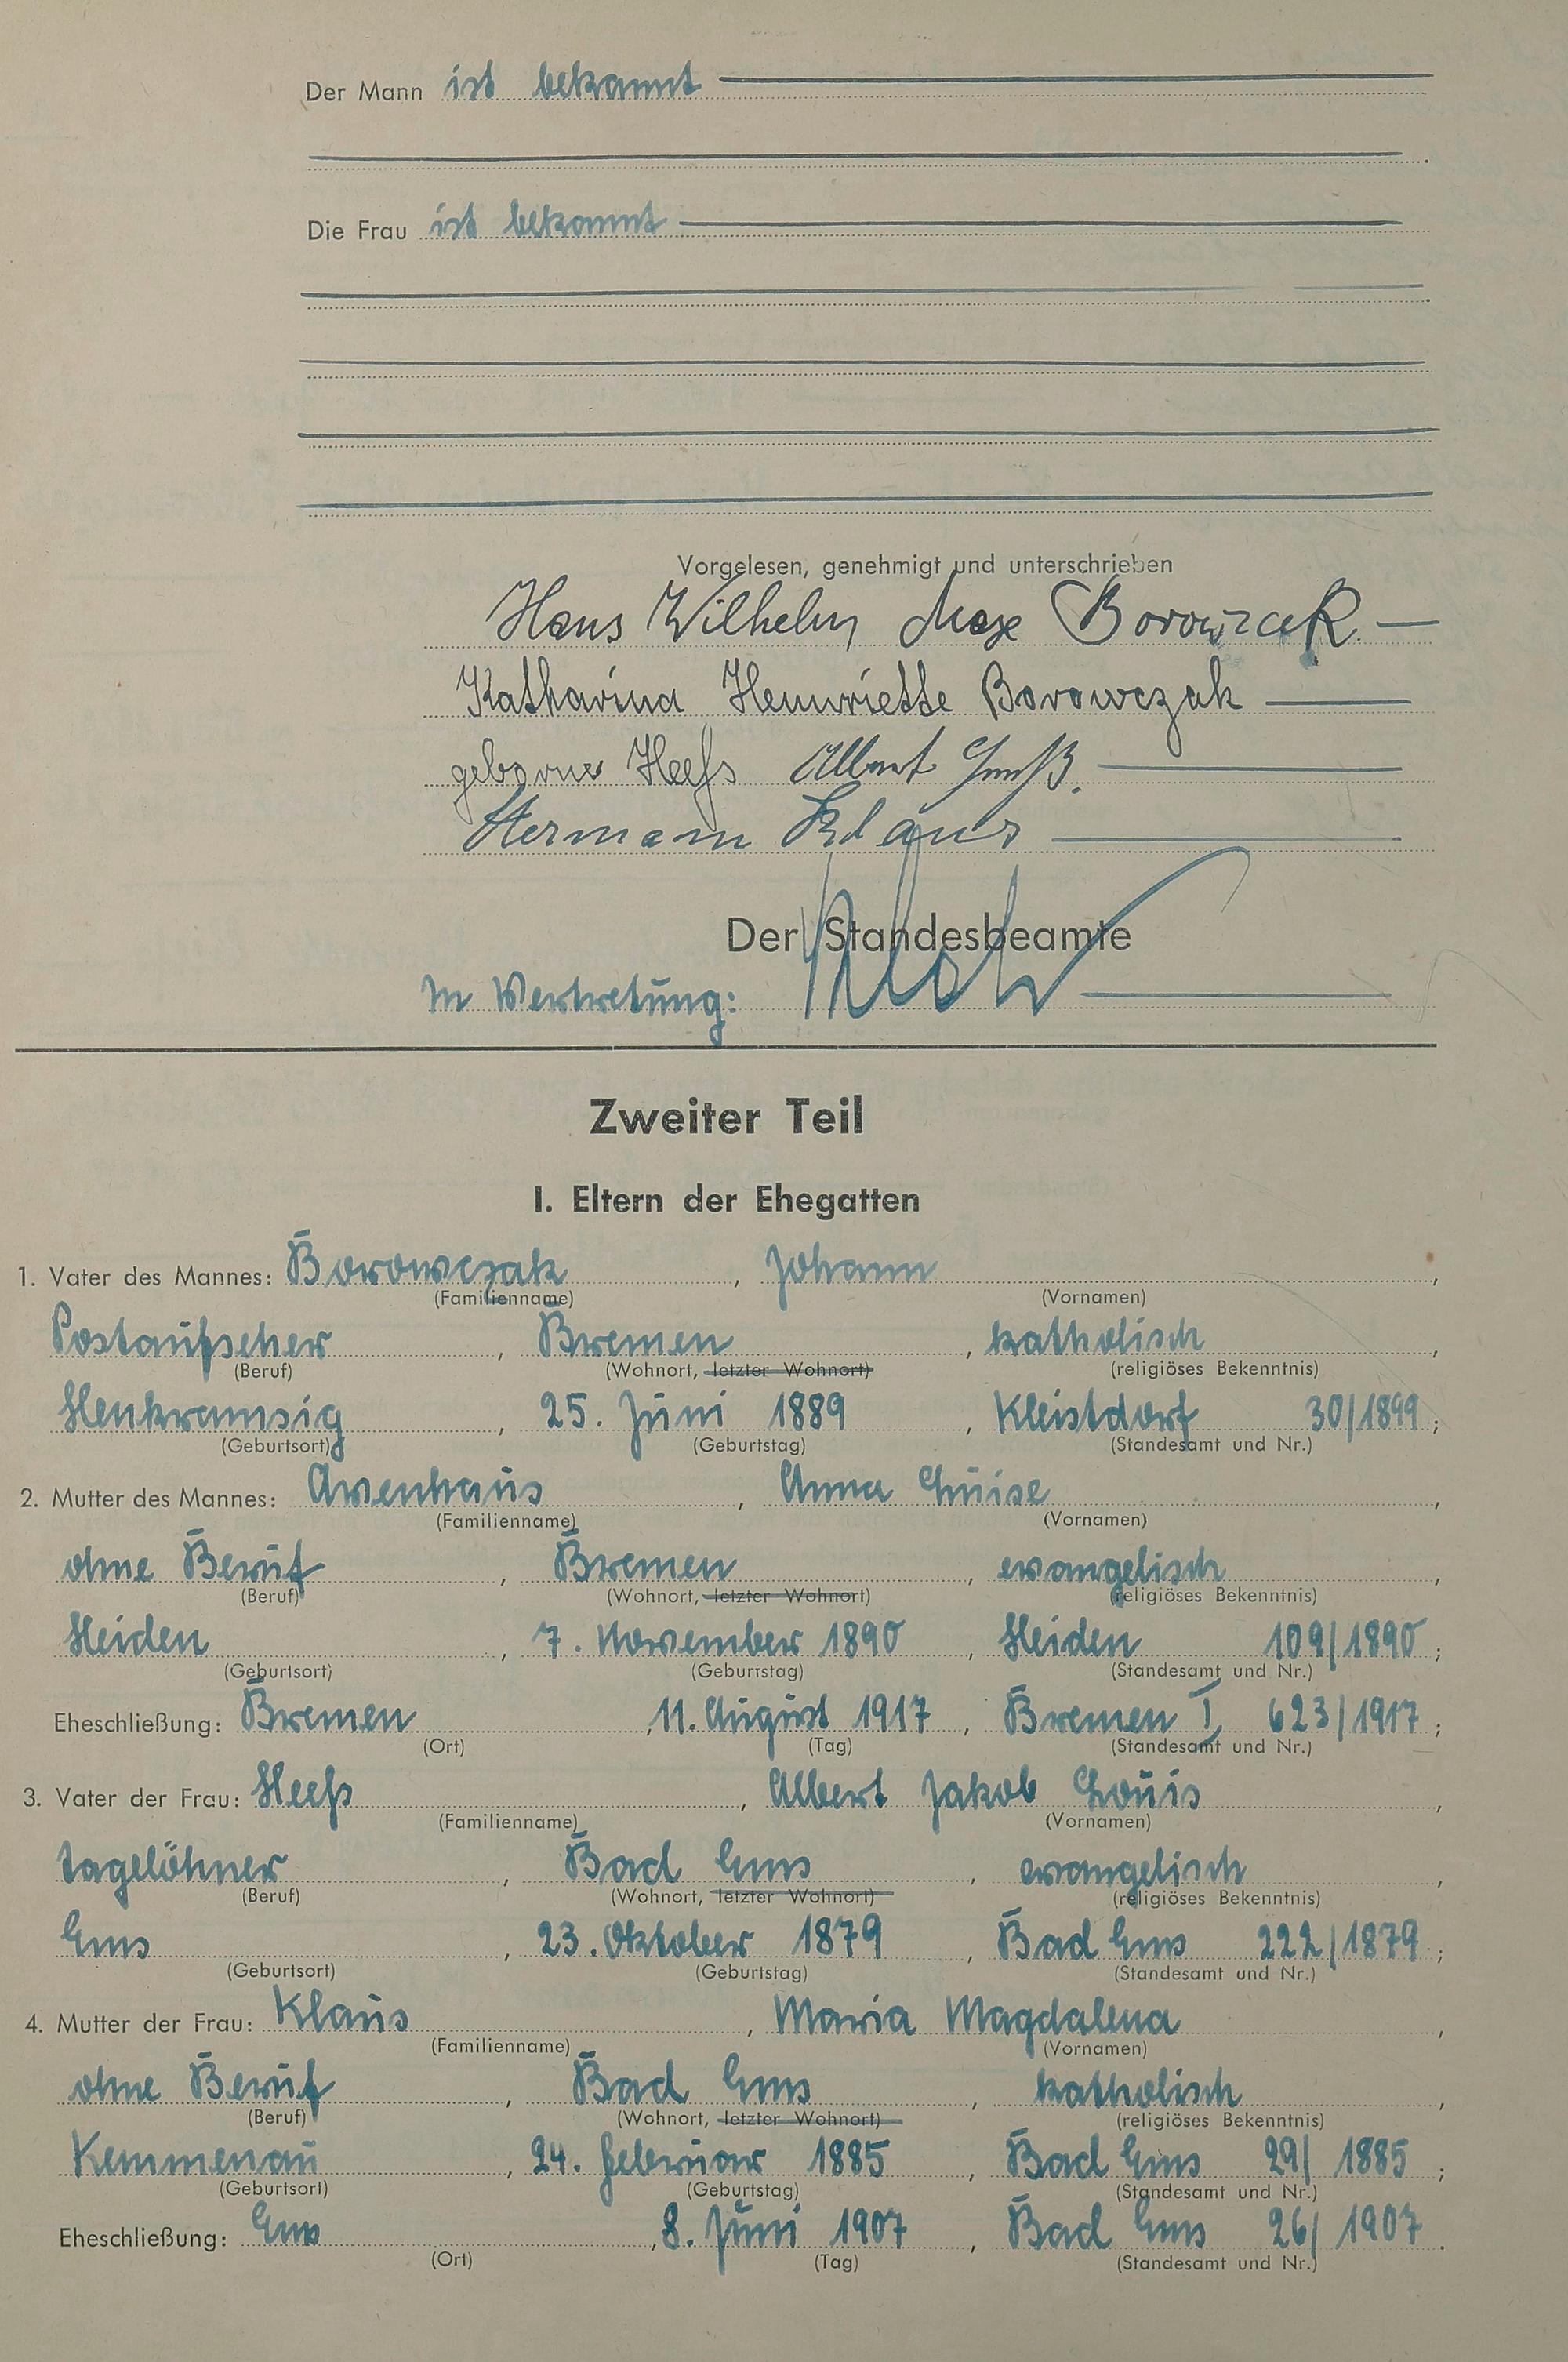 Der Mann ist bekannt
Die Frau ist bekannt
Vorgelesen, genehmigt und unterschrieben
Hans Wilhelm Max Borowczak
Katharina Hennriette Borowczak
geborne Heeß Albert
Hermann Klaus
Der Standesbeamte
In Vertretung:
Zweiter Teil
I. Eltern der Ehegatten
1. Vater des Mannes: Borowczak, Johann,
(Familienname) (Vornamen)
Postaufseher, Bremen, katholisch,
(Beruf) (Wohnort, letzter Wohnort) (religiöses Bekenntnis)
25. Juni 1889, Kleistdorf 30/1899;
(Geburtsort) (Geburtstag) (Standesamt und Nr.)
2. Mutter des Mannes: Avenhaus, Anna Luise,
(Familienname) (Vornamen)
ohne Beruf, Bremen, evangelisch,
(Beruf) (Wohnort, letzter Wohnort) (religiöses Bekenntnis)
Heiden, 7. November 1890, Heiden 109/1890;
(Geburtsort) (Geburtstag) (Standesamt und Nr.)
Eheschließung: Bremen, 11. August 1917, Bremen I 623/1917;
(Ort) (Tag) (Standesamt und Nr.)
3. Vater der Frau: Heeß, Albert Jakob Louis,
(Familienname) (Vornamen)
Tagelöhner, Bad Ems, evangelisch,
(Beruf) (Wohnort, letzter Wohnort) (religiöses Bekenntnis)
Ems, 23. Oktober 1879, Bad Ems 222/1879;
(Geburtsort) (Geburtstag) (Standesamt und Nr.)
4. Mutter der Frau: Klaus, Maria Magdalena,
(Familienname) (Vornamen)
ohne Beruf, Bad Ems, katholisch,
(Beruf) (Wohnort, letzter Wohnort) (religiöses Bekenntnis)
Kemmenau, 24. Februar 1885, Bad Ems 29/1885;
(Geburtsort) (Geburtstag) (Standesamt und Nr.)
Eheschließung: Ems, 8. Juni 1907, Bad Ems 26/1907.
(Ort) (Tag) (Standesamt und Nr.)